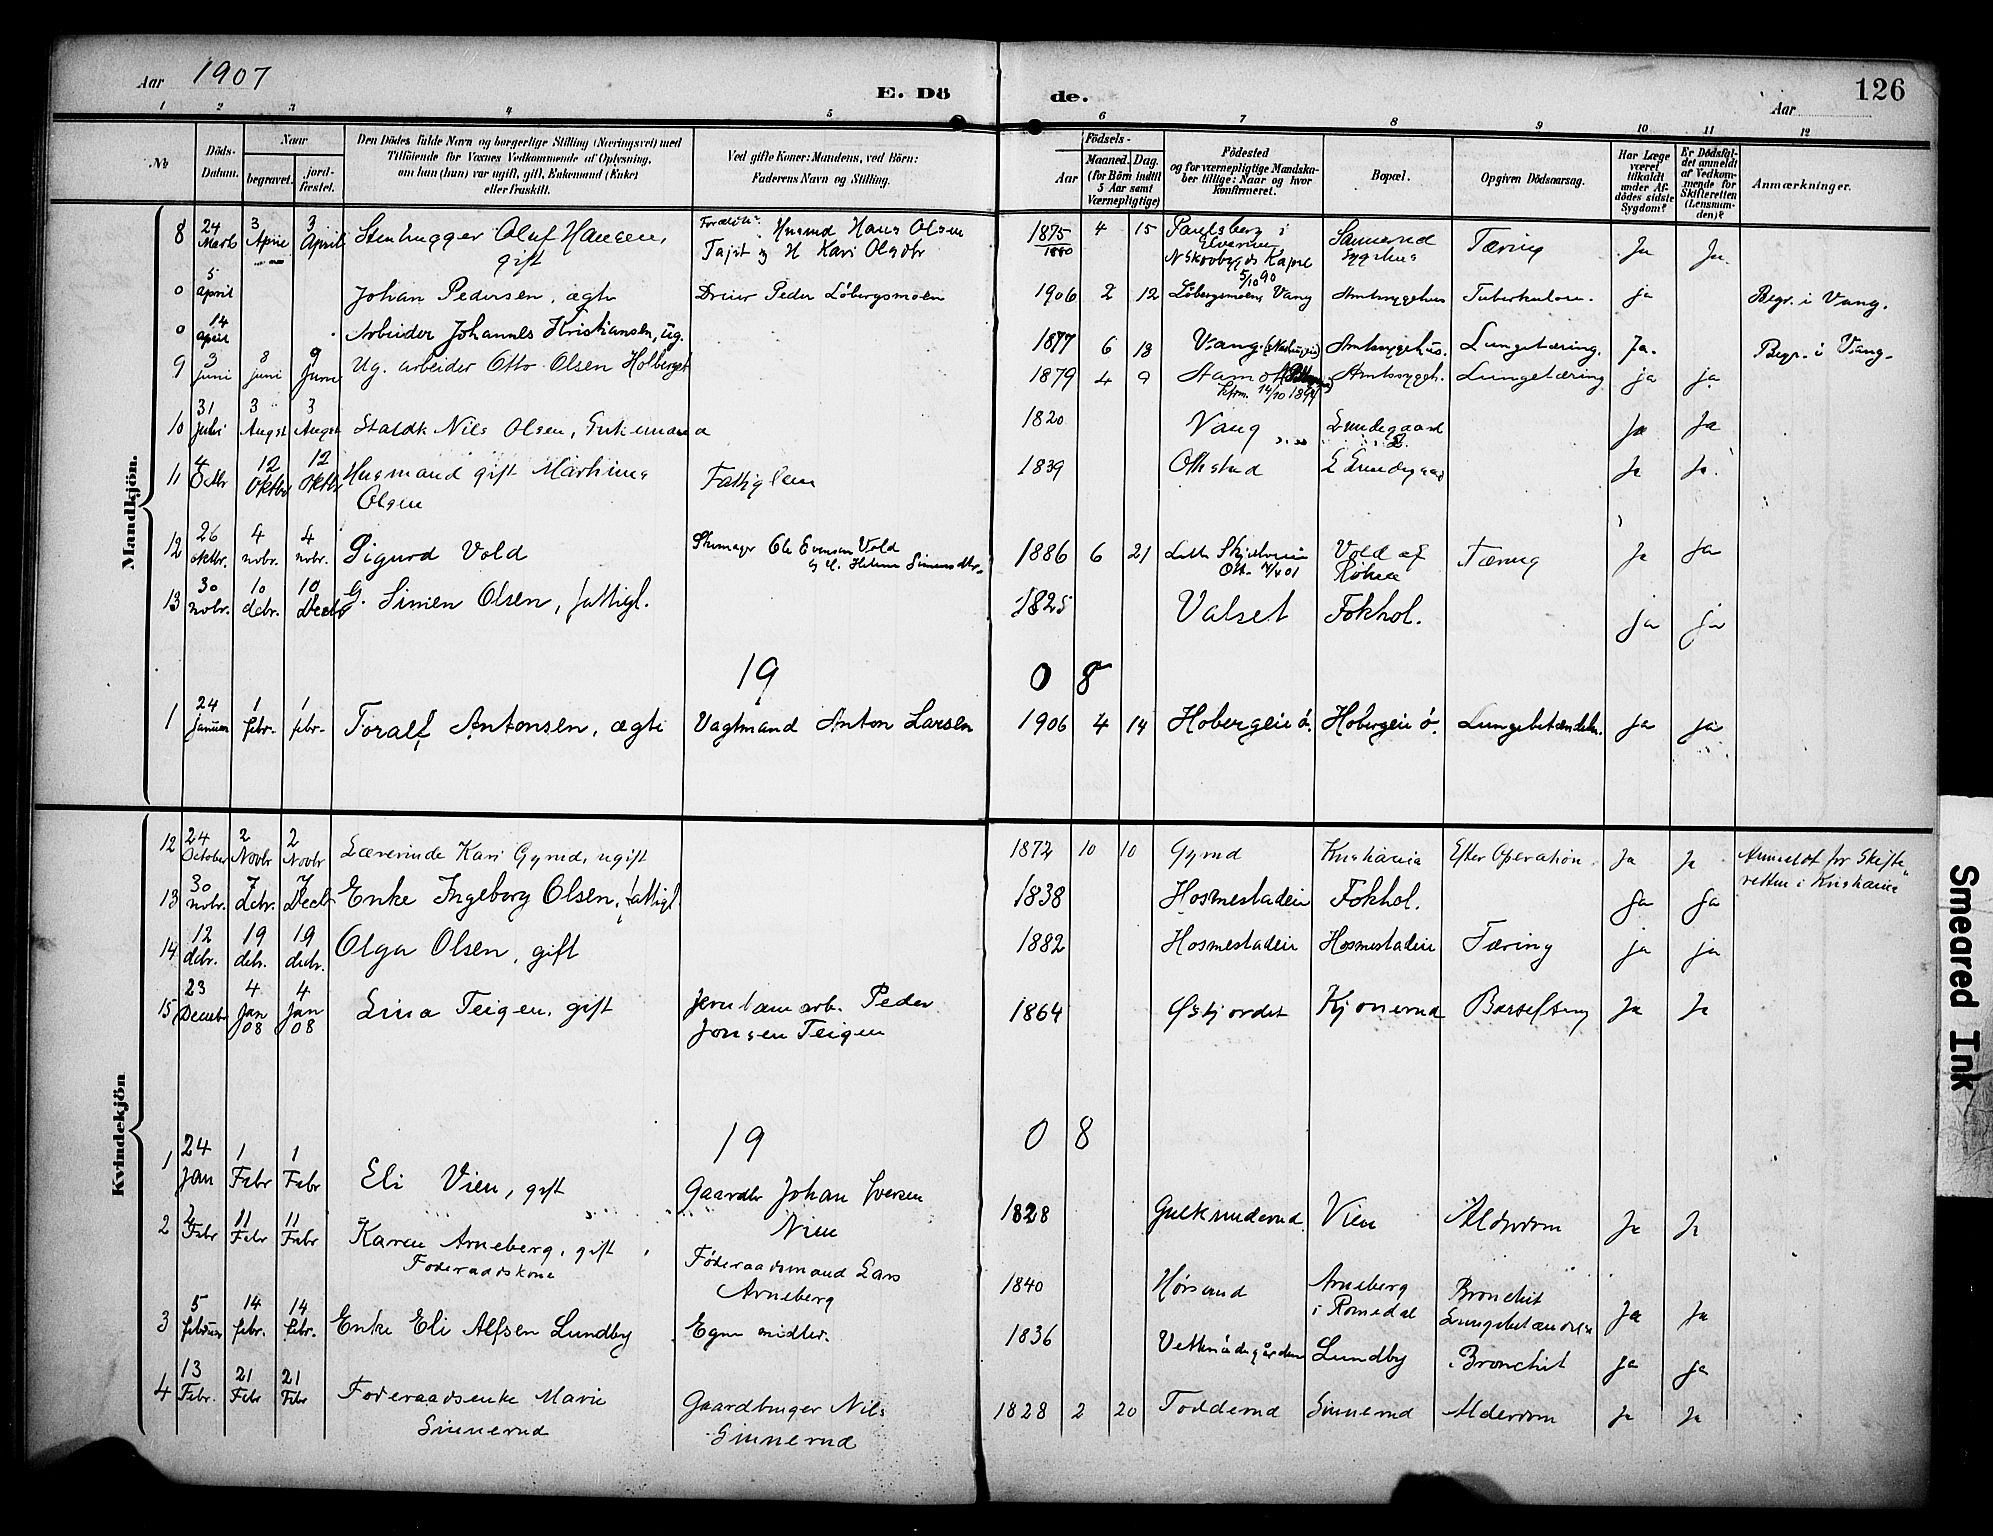 Aar 1907
E. Dö
de.
Aar
126
1 2 3 4 5 6 7 8 9 10 11 12
No
Döds-Datum.
Naar
begravet.
jord-fæstet.
Den Dödes fulde Navn og borgerlige Stilling (Næringsvei) med
Tilföiende for Voxnes Vedkommende af Oplysning,
om han (hun) var ugift, gift, Enkemand (Enke)
eller fraskilt.
Ved gifte Koner: Mandens, ved Börn:
Faderens Navn og Stilling.
Födsels-
Aar
Maaned. Dag.
(for Börn indtil
5 Aar samt
Værnepligtige)
Födested
og for værnepligtige Mandska-
ber tillige: Naar og hvor
konfirmeret.
Bopæl.
Opgiven Dödsaarsag.
Har Læge
været
tilkaldt
under Af-
dödes sidste
Sygdom?
Er Dödsfal-
det anmeldt
af Vedkom-
mende for
Skifteretten
(Lensman-
den)?
Anmærkninger.
Mandkjön.
8 24 Marts 3 April 3 April Stenhugger Oluf Hansen, gift Husmd Hans Olsen og H Kari Olsdtr 1875 4 15 Paulsberg i Elverum 5/10 90 Sannerud Sygehus Tæring Ja Ja
0 5 april Johan Pedersen, ægte Dreier Peder Løbergsmoen 1906 2 12 Løbergsmoen, Vang Amtssygehus Tuberkulose. ja Begr. i Vang.
0 14 april Arbeider Johannes Kristiansen, ug. 1877 6 18 Vang Amtssygehus. Lungetæring. Ja. Begr. i Vang.
9 3 juni 8 juni 9 Juni Ug. arbeider Otto Olsen Holberget 1879 4 9 Aamot 14/10 1894 Amtssygeh. Lungetæring ja ja
10 31 Juli 3 Augst 3 Augst Staldk Nils Olsen, Enkemand 1820 Vang Lundegaard Ja Ja
11 4 Octbr 12 Oktbr 12 Oktbr Husmand gift Martinus Olsen Fattiglem 1839 Ottestad L Lundegaard Ja Ja.
12 26 oktbr. 4 novbr. 4 nobr. Sigurd Vold Skomager Ole Evensen Vold og H. Helene Simensdtr. 1886 6 21 Vold af Røhne Tæring Ja Ja
13 30 nobr. 10 dcbr. 10 Decbr G. Simen Olsen, fattigl. 1825 Valset Fokhol. Ja Ja
19 0 8
1 24 Januar 1 febr. 1 febr. Toralf Antonsen, ægte Vagtmand Anton Larsen 1906 4 14 Hobergeie ø. Hobergeie ø. Lungebetændelse. ja ja
Kvindekjön
12 24 October 2 Novbr 2 Novbr Lærerinde Kari Gyrud, ugift 1872 10 10 Gyrud Kristiania Efter Operation Ja Ja Anmeldt for Skifte-
retten i Kristiania
13 30 nobr. 7 Dcbr. 7 Decbr Enke Ingeborg Olsen, fattigl. 1838 Hosmestadeie Fokhol. Ja Ja
14 12 debr. 19 debr. 19 debr. Olga Olsen, gift 1882 Hosmestadeie Hosmestadeie Tæring ja ja
15 23 Decembr 4 Jan 08 4 Jan 08 Lina Teigen, gift Jernbanearb. Peder
Jonsen Teigen 1864 Østjordet Kjonerud Barselseng Ja Ja
19 0 8
1 24 Jan 1 Febr 1 Febr Eli Vien, gift Gaardbr Johan Iversen
Vien 1828 Vien Alderdom Ja Ja
2 2 Febr 11 Febr 11 Febr Karen Arneberg, gift
Føderaadskone Føderaadsmand Lars
Arneberg 1840 Hørsand Arneberg
i Romedal Bronchit
Lungebetændelse Ja Ja
3 5 februar 14 febr. 14 febr. Enke Eli Alfsen Lundby Egne midler. 1836 Lundby Bronchit ja ja
4 13 Febr. 21 Febr 21 Febr Føderaadsenke Marie
Sinnerud Gaardbruger Nils
Sinnerud 1828 2 20 Todderud Sinnerud Alderdom Ja Ja
Smeared Ink